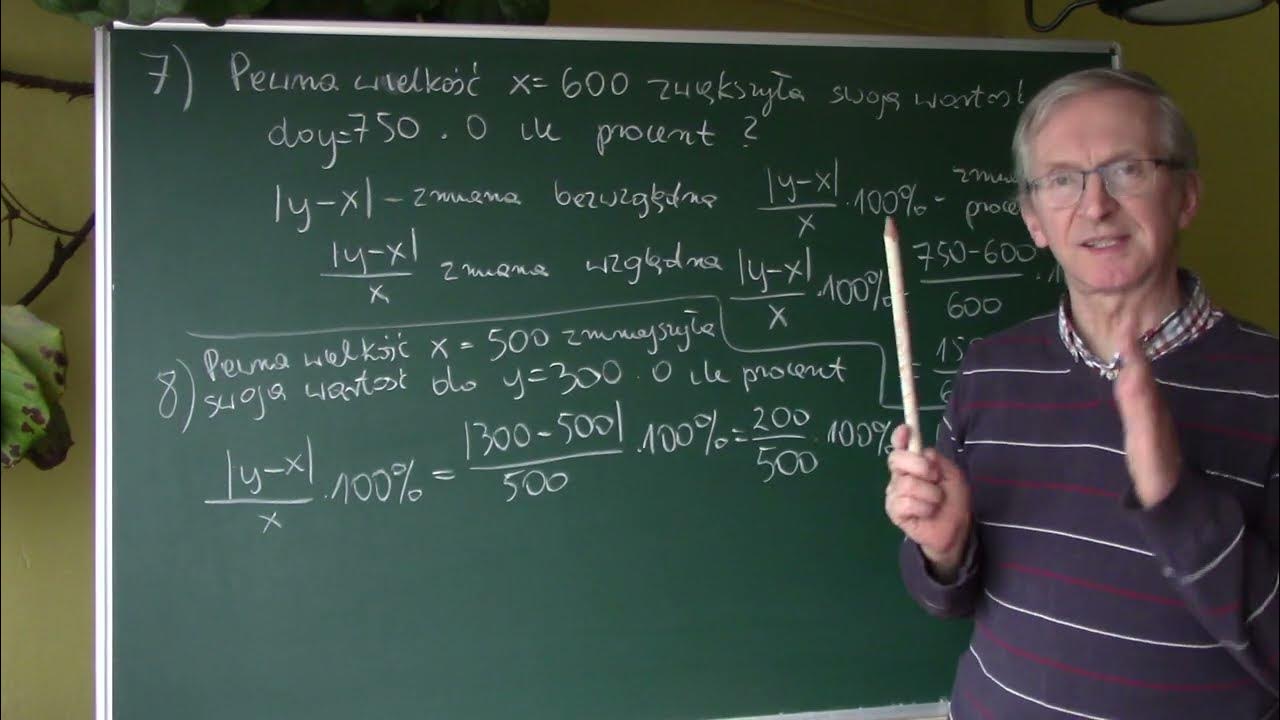 7) Pewna wielkość x=600 zwiększyła swoją wartość
do y=750. O ile procent?
|y-x| - zmiana bezwzględna |y-x|/x · 100% -
|y-x|/x zmiana względna |y-x|/x · 100% = 750-600/600 ·
8) Pewna wielkość x = 500 zmniejszyła
swoją wartość do y=300. O ile procent
|y-x|/x · 100% = |300-500|/500 · 100% = 200/500 · 100%